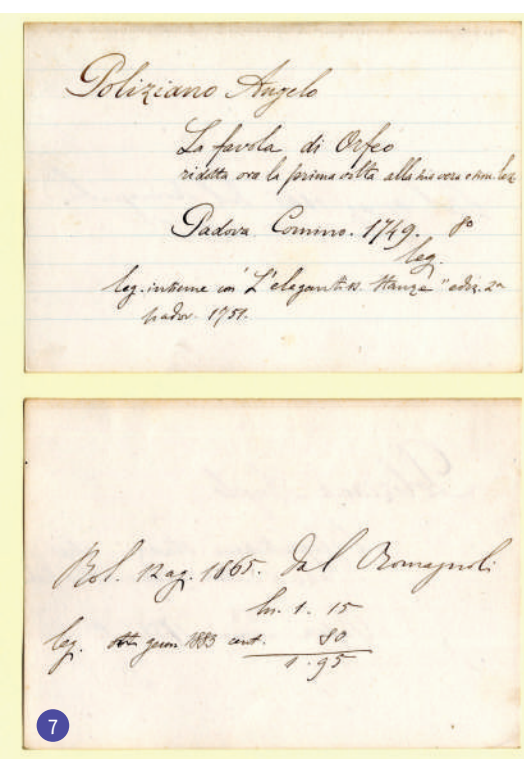 Poliziano Angelo
La favola di Orfeo
ridotta ora la prima volta alla sua vera e sin. lez.
Padova Comino. 1749. 8º
leg.
leg. insieme con "L'elegantiss. Stanze" ediz. 2ª
padov. 1751.
Bol. 12 ag. 1865. Dal Romagnoli
ln. 1. 15
leg. genn. 1883 cent. 80
1. 95
7